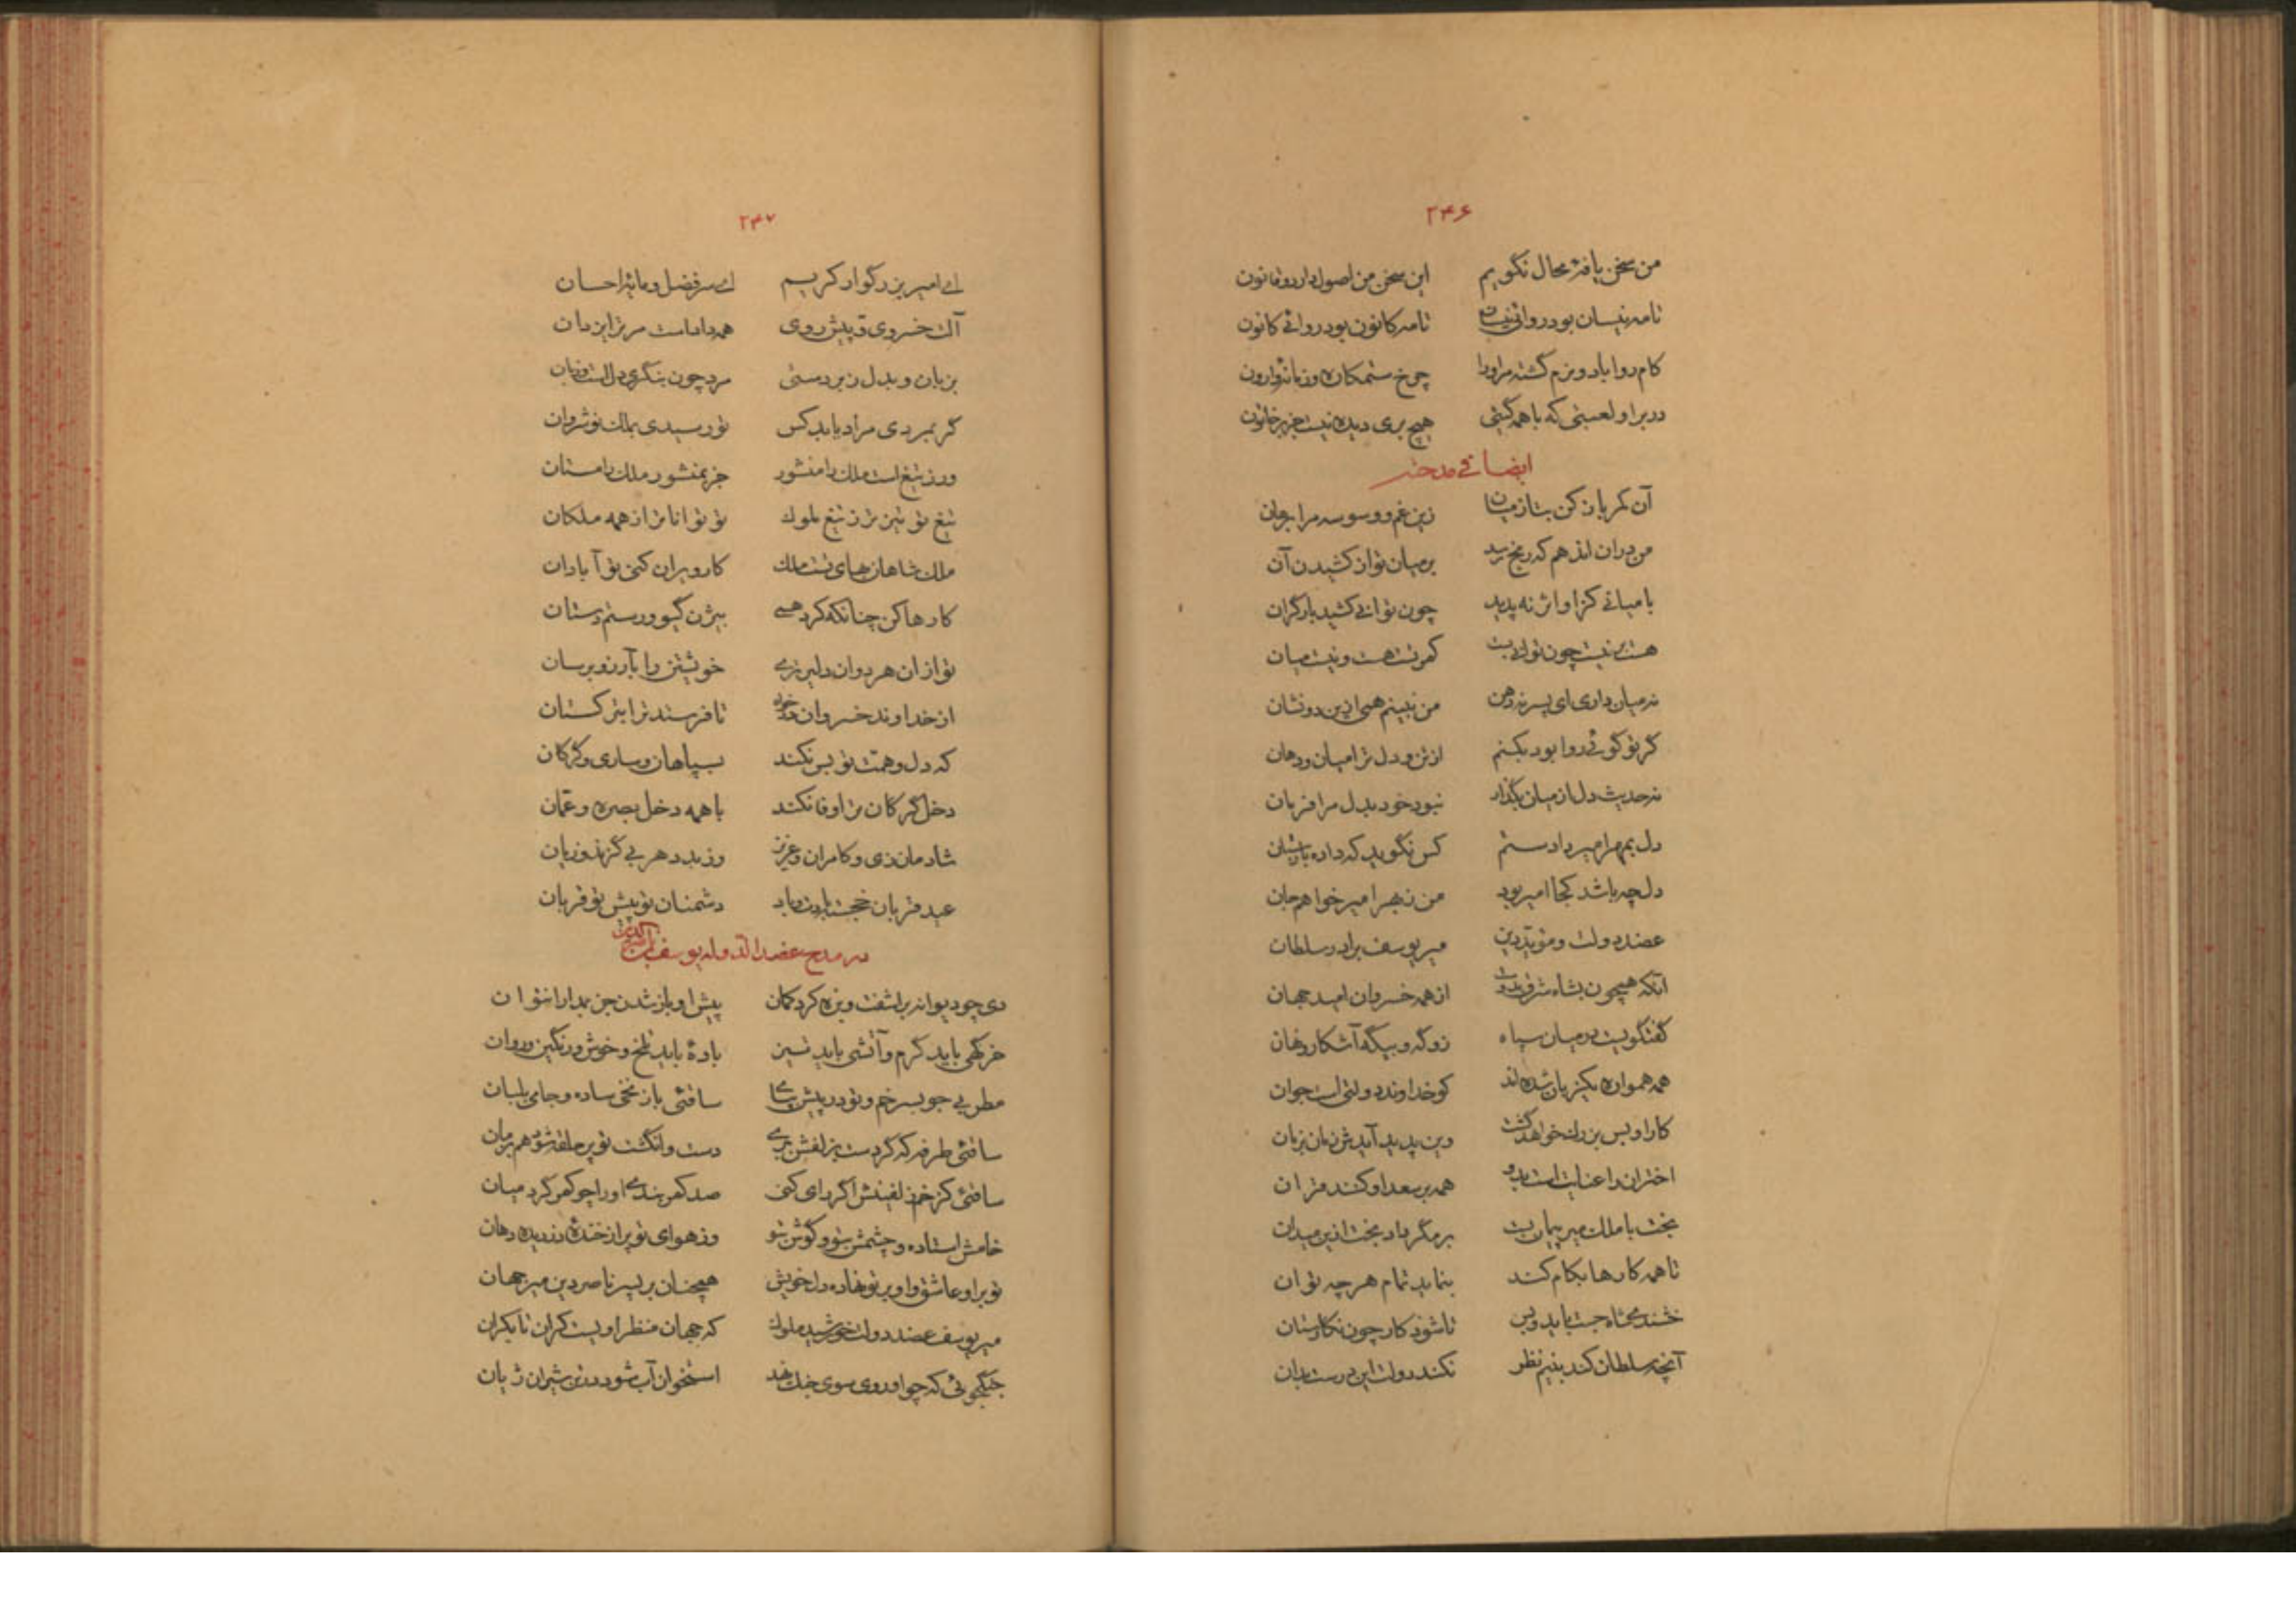 ۲۴۶
من سخن یافه محال نگویم این سخن من اصول دارد و قانون
تا مه نیسان بود روا فی نیسان تا مه کانون بود روا فی کانون
کام روا باد و نرم گشته مر او را چرخ ستمکاره و زمانه وارون
در بر او لعبتی که با همه گیتی هیچ بری دیده نیست جز بر خاتون
ایضا فی مدحه
آن کمر باز کن بتا ز میان زین غم و وسوسه مرا برهان
من دران انده‌م که رنج رسد بر میان تو از کشیدن آن
با میانی کزاو اثر نه پدید چون توانی کشید بار گران
هست بر نیست چون توانی بست کمرت هست و نیست میان
نه میان داری ای پسر نه دهن من نبینم همی ازین دو نشان
گر تو گوئی روا بود بکنم از تن و دل ترا میان و دهان
نه حدیث دل از میان بگذار نبود خود بدل مرا فرمان
دل بمهر امیر دادستم کس نگوید که داده باز ستان
دل چه باشد کجا امیر بود من ز بهر امیر خواهم جان
عضد دولت و مؤید دین میر یوسف برادر سلطان
آنکه همچون بشاه شرق بدوست از همه خسروان امید جهان
گفتگویست در میان سپاه زو گه و بیگه آشکار و نهان
همه همواره یکزبان شده‌اند کو خداوند دولتی است جوان
کار او بس بزرگ خواهد گشت وین پدید آیدش زمان بزمان
اختران را عنایت است بدو همه بر سعد او کنند قران
بخت با ملک میر پیمان بست بر مگرداد بخت ازین میدان
تا همه کارها بکام کند بنماید تمام هر چه توان
تا شود کار چون نگارستان
آنچه سلطان کند بنیم نظر نکند دولت این درست بدان
۲۴۷
ای امیر بزرگوار کریم ای سر فضل و مایه احسان
آلت خسروی و پیش روی همه دادست مر ترا یزدان
بزبان و بدل زبردستی مرد چون بنگری دل است و زبان
گر بمردی مراد یابد کس تو رسیدی بملک نوشروان
ور ز تیغ است ملک را منشور جز بمنشور ملک را مستان
تیغ تو تیز تر ز تیغ ملوک تو تواناتر از همه ملکان
ملک شاهان همای تست ملک کار ویران کنی تو آبادان
کارها کن چنانکه کرد همی بیژن گیو و رستم دستان
تو از ان هر دوان دلیرتری خویشتن را بآرزو برسان
از خداوند خسروان درخواه تا فرستد ترا بترکستان
که دل و همت تو بس نکند بسپاهان و ساری و گرگان
دخل گرگان ترا وفا نکند با همه دخل بصره و عمان
شادمان زی و کامران و عزیز وز بد دهر بی گزند و زیان
عید قربان خجسته بادت و باد دشمنان تو پیش تو قربان
در مدح عضد الدوله یوسف بن ناصرالدین
دی چو دیوانه برآشفت و بزه کرد کمان پیش او باز شدن جز بمدارا نتوان
خرگهی باید گرم و آتشی باید تیز بادهٔ باید تلخ و خوش و رنگین و روان
مطربی جو بسر خم و تو در پیش بپای ساقئی باز نخی ساده و جامی بلبان
ساقئی طرفه که گر دست بزلفش ببری دست و انگشت تو پر حلقه شود هم بزمان
ساقئی کز خم زلفینش اگر رای کنی صد کمر بندی او را چو کمر گرد میان
خامش استاده و چشمش بتو و گوش بتو وز هوای تو پر از خنده دزدیده دهان
تو بر او عاشق و او بر تو نهاده دل خویش همچنان بر پسر ناصر دین میر جهان
میر یوسف عضد دولت خورشید ملوک که جهان منظر اویست کران تا بکران
جنگجوئی که چو او روی سوی جنگ نهد استخوان آب شود در تن شیران ژیان